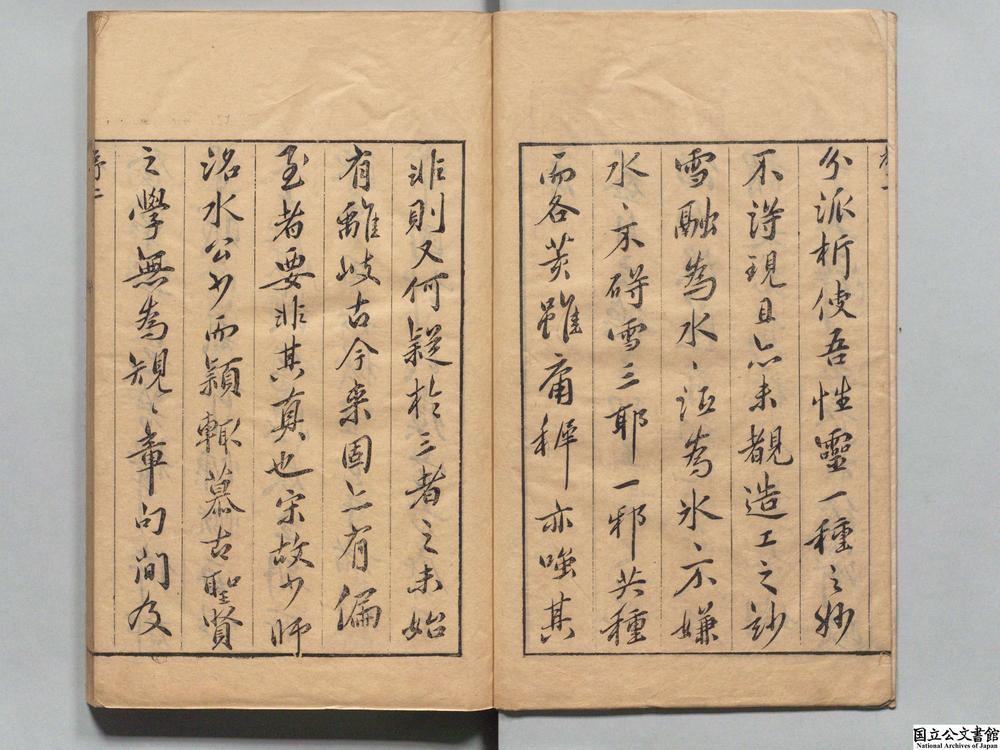 分派析使吾性靈一種之妙
不得現且亦未覩造工之妙
雪融為水〻沍為氷亦嫌
水〻亦碍雪三耶一邪共種
而各芽雖庸稗亦嗤其
非則又何疑於三者之未始
有離岐古今來固亦有偏
至者要非其真也宋故少師
洺水公少而穎輙慕古聖賢
之學無為規〻章句間及
序二
国立公文書館
National Archives of Japan